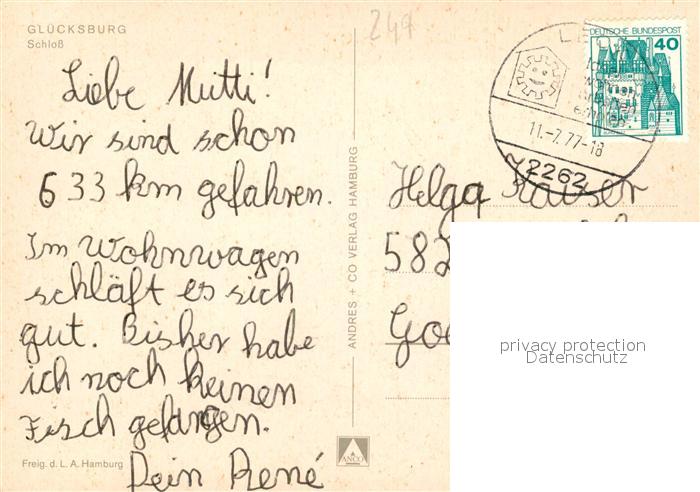 GLÜCKSBURG
Schloß
249
Liebe Mutti!
Wir sind schon
633 km gefahren.
Im Wohnwagen
schläft es sich
gut. Bisher habe
ich noch keinen
Fisch gefangen.
Dein René
Freig. d. L. A. Hamburg
ANDRES + CO VERLAG HAMBURG
ANCO
DEUTSCHE BUNDESPOST
40
11.-7.77-18
2262
Helga Kaiser
582
Go
privacy protection
Datenschutz